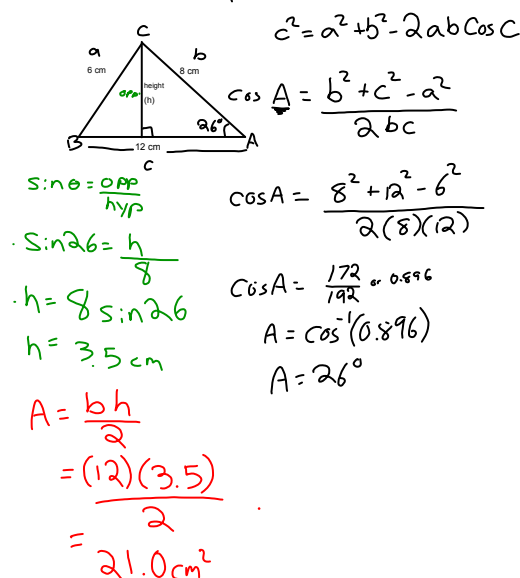 c² = a² + b² - 2ab Cos C
C
a
b
6 cm
8 cm
opp
height
(h)
26°
B
A
12 cm
c
cos A = (b² + c² - a²) / 2bc
cosA = (8² + 12² - 6²) / 2(8)(12)
cosA = 172/192 or 0.896
A = cos⁻¹(0.896)
A = 26°
sinθ = opp/hyp
· Sin26 = h/8
· h = 8 sin26
h = 3.5 cm
A = bh/2
= (12)(3.5)/2
= 21.0 cm²